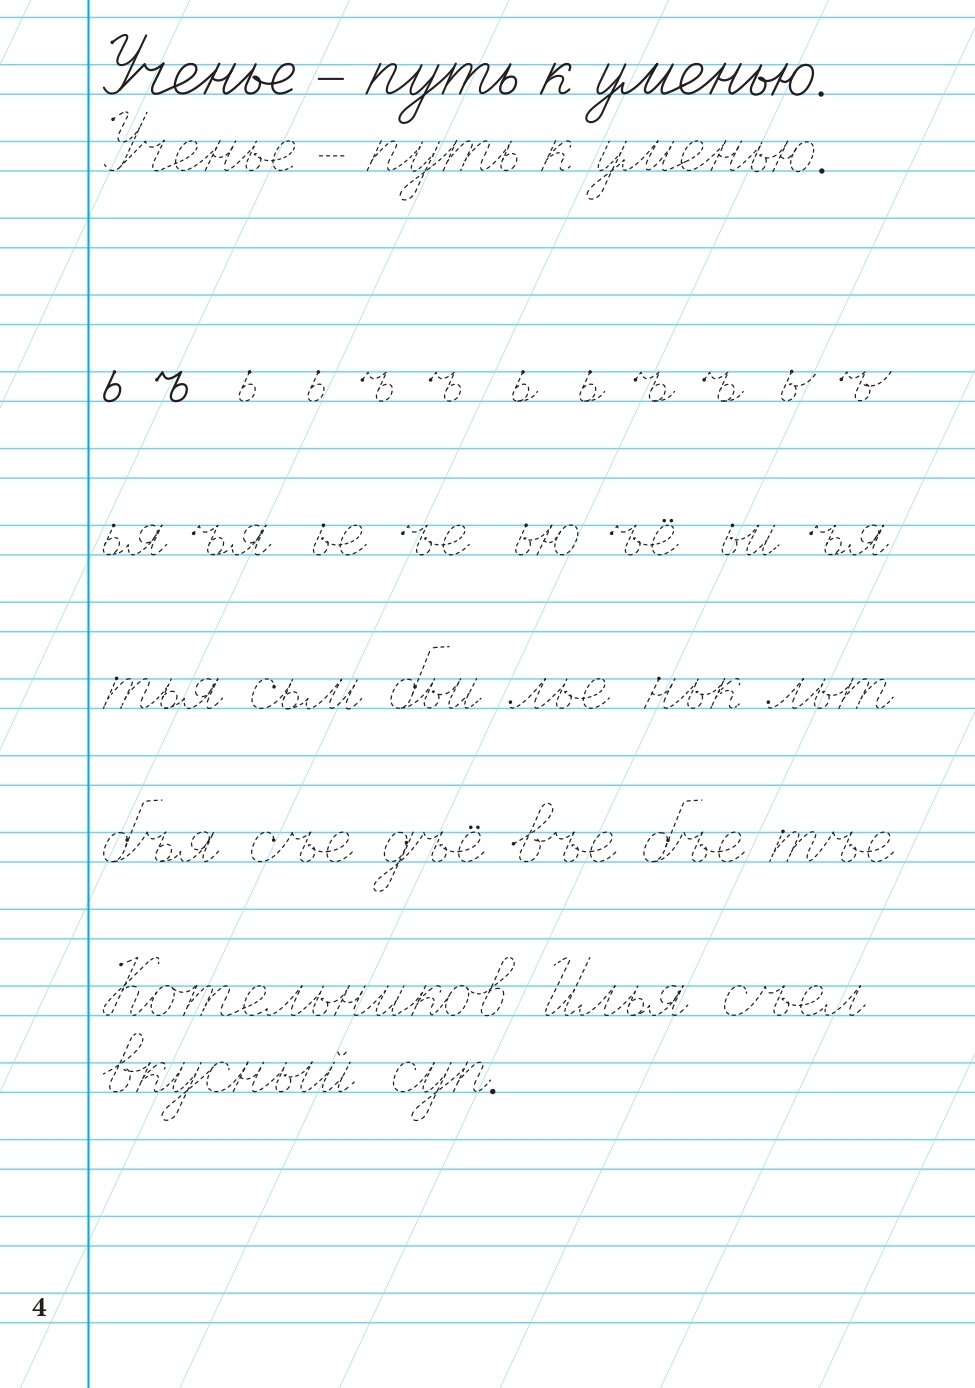 Ученье – путь к уменью.
Ученье – путь к уменью.
ь ъ ь ь ъ ъ ь ь ъ ъ ь ъ
ья ъя ье ъе ью ъё ьи ъя
тья сьм бьи лье ньк льт
бъя съе дъё въе бъе тъе
Котельников Илья съел
вкусный суп.
4